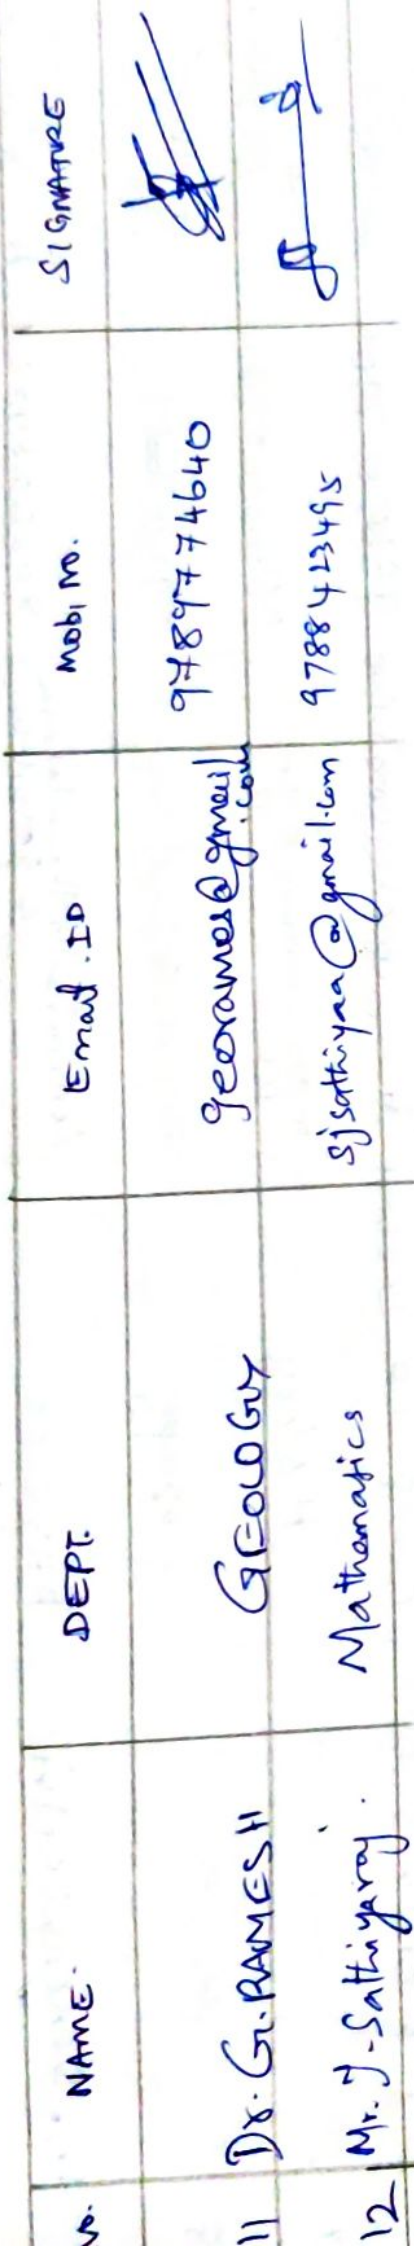 No. NAME. DEPT. Email .ID Mobi No. SIGNATURE
11 Dr. G. RAMESH GEOLOGY georames@gmail.com 9789774640
12 Mr. J. Sathiyaraj. Mathematics sjsathiyaa@gmail.com 9788423495